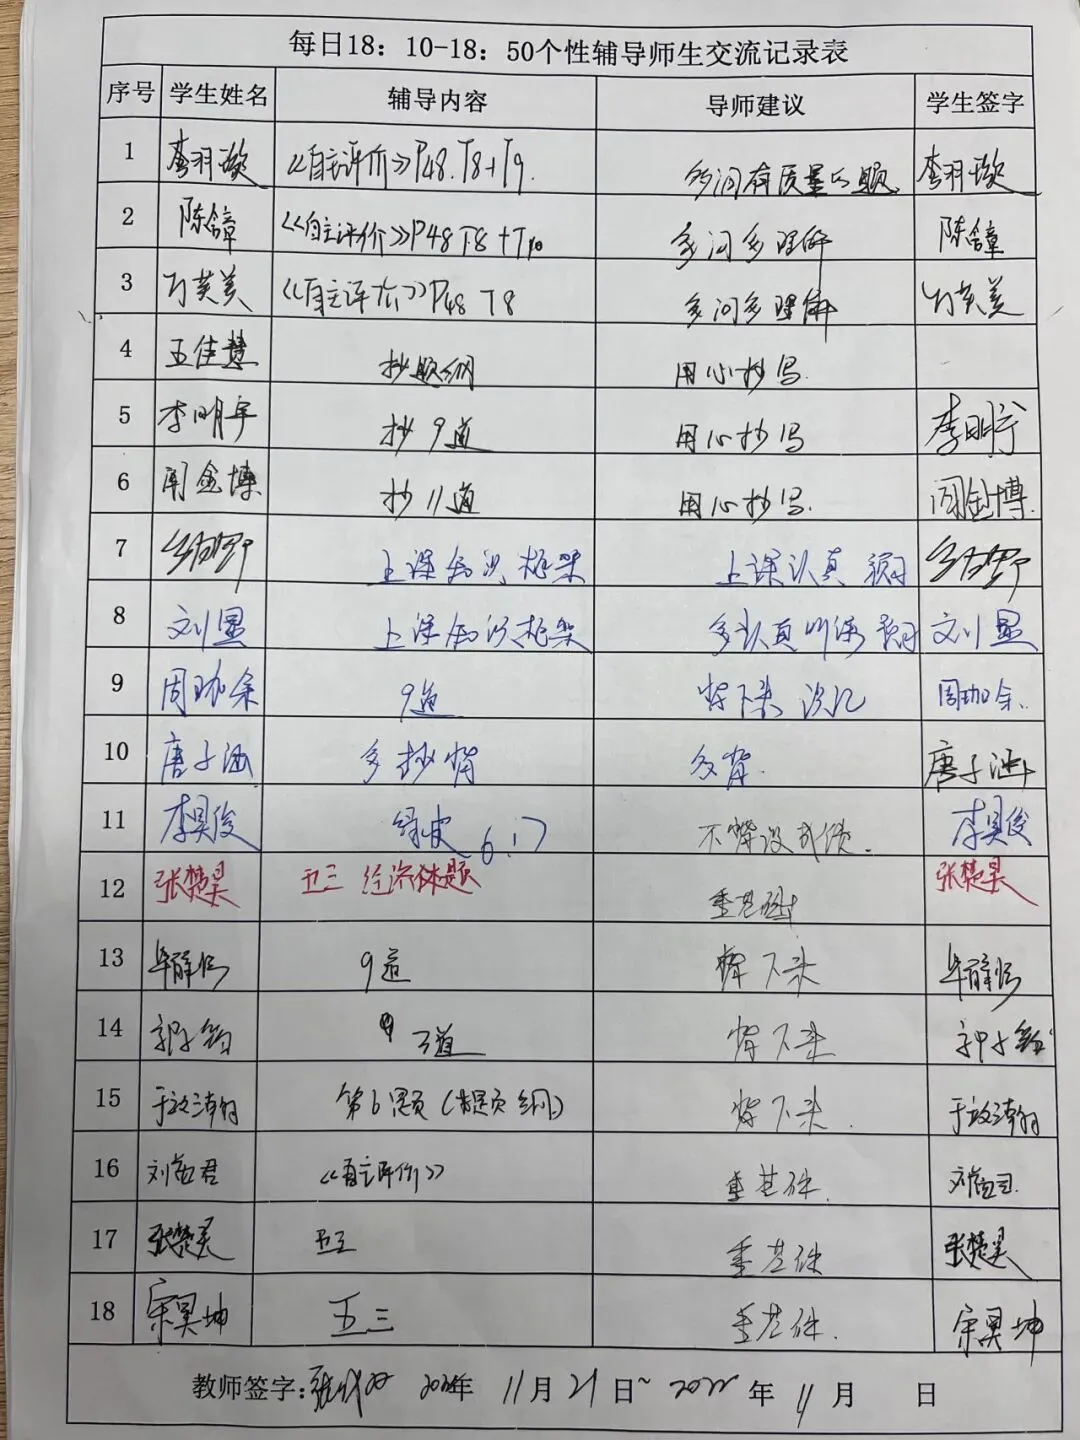 每日18：10-18：50个性辅导师生交流记录表
序号 学生姓名 辅导内容 导师建议 学生签字
1 李羽璇 《自主评价》P48.T8+T9. 多问有质量的题. 李羽璇
2 陈 《自主评价》P48 T8+T10 多问多理解 陈
3 万芙美 《自主评价》P48 T8 多问多理解 万芙美
4 王佳慧 抄题纲 用心抄写.
5 李明宇 抄9道 用心抄写 李明宇
6 闫金博 抄11道 用心抄写. 闫金博.
7 上课知识框架 上课认真
8 刘显 上课知识框架 多认真听课 刘显
9 周珈余 9道 背下来 周珈余.
10 唐子涵 多抄背 多背. 唐子涵
11 李昊俊 绿皮6.17 不背没成绩. 李昊俊
12 张楚昊 五三 经济体题 重基础 张楚昊
13 9道 背下来
14 3道 背下来
15 第6题 背下来.
16 刘 君 《自主评价》 重基础. 刘
17 张楚昊 五三 重基础 张楚昊
18 宗昊坤 五三 重基础. 宗昊坤
教师签字： 2022年 11月21日~2022年 11月 日